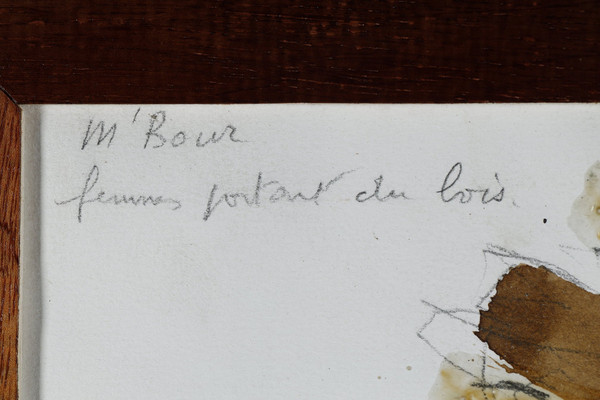 M'Bour
femmes portant du bois.